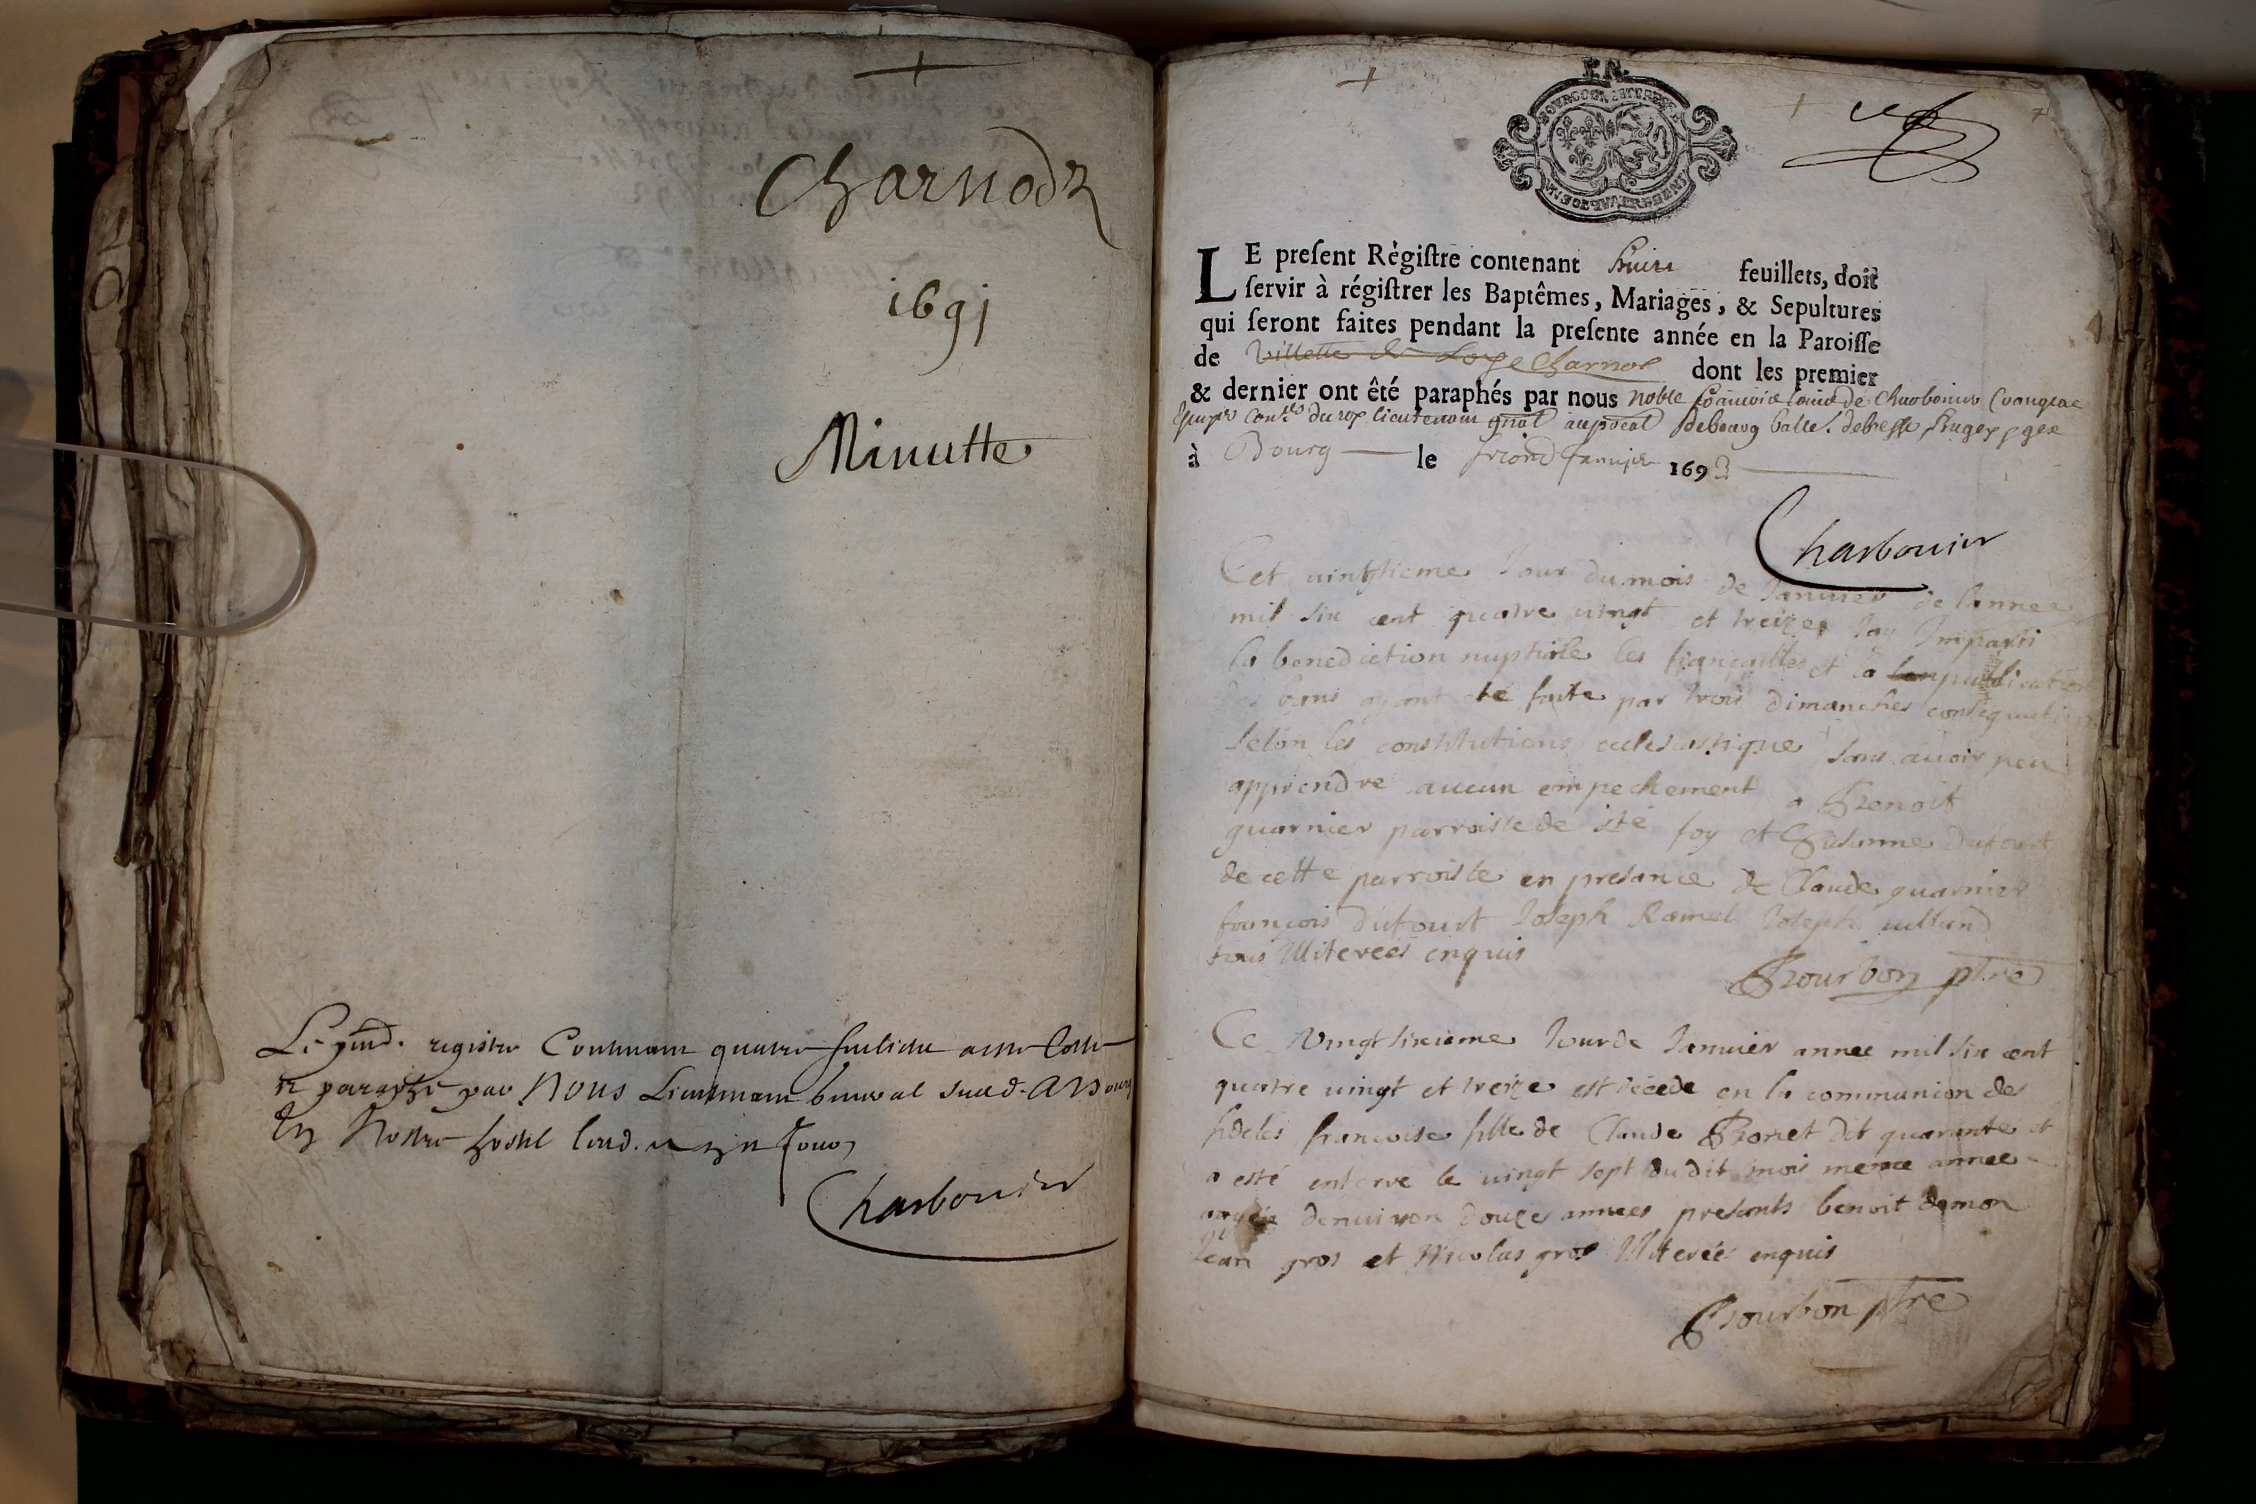 Charnodz
1691
Minutte
Le pnt. registre Contenant quatre feuillets
et paraphé par Nous Lieutenant general
En Nostre hostel
Charbonier
LE preſent Régiſtre contenant feuillets, doit
ſervir à régiſtrer les Baptêmes, Mariages, & Sepultures
qui ſeront faites pendant la preſente année en la Paroiſſe
de Villette de Loye Charnos dont les premier
& dernier ont êté paraphés par nous noble de Charbonier
du roy lieutenant gnal au Debourg balle. debresse Bugey gex
à Bourg le Janvier 1693
Charbonier
Cet vinghtieme Jour du mois de Janvier de lannee
mil six cent quatre vingt et treize Jay Imparti
la benediction nuptiale les fiançailles et la publication
des bans ayant eté faite par trois dimanches consequtifs
selon les constitutions eclesiastique sans avoir peu
apprendre aucun empechement a Benoit
guarnier parroisse de ste foy et Dufourt
de cette parroisse en presance de Claude guarnier
francois dufourt Joseph Ramel Joseph
tous Illiterées enquis
Bourbon ptre
Ce vingt sixieme Jour de Janvier annee mil six cent
quatre vingt et treize est decede en la communion des
fideles francoise fille de Claude Bonet dit quarante et
a esté enterre le vingt sept du dit mois meme annee
denuiron douze annees presents benoit damon
Jean gros et Nicolas gros Illiterée enquis
Bourbon ptre